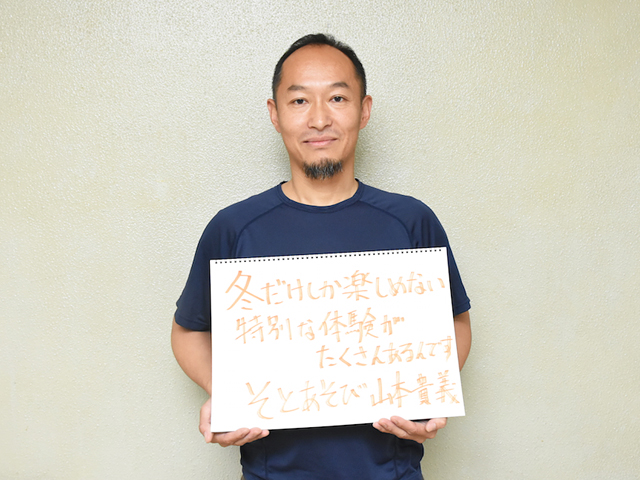 冬だけしか楽しめない
特別な体験が
たくさんあるんです
そとあそび 山本貴義